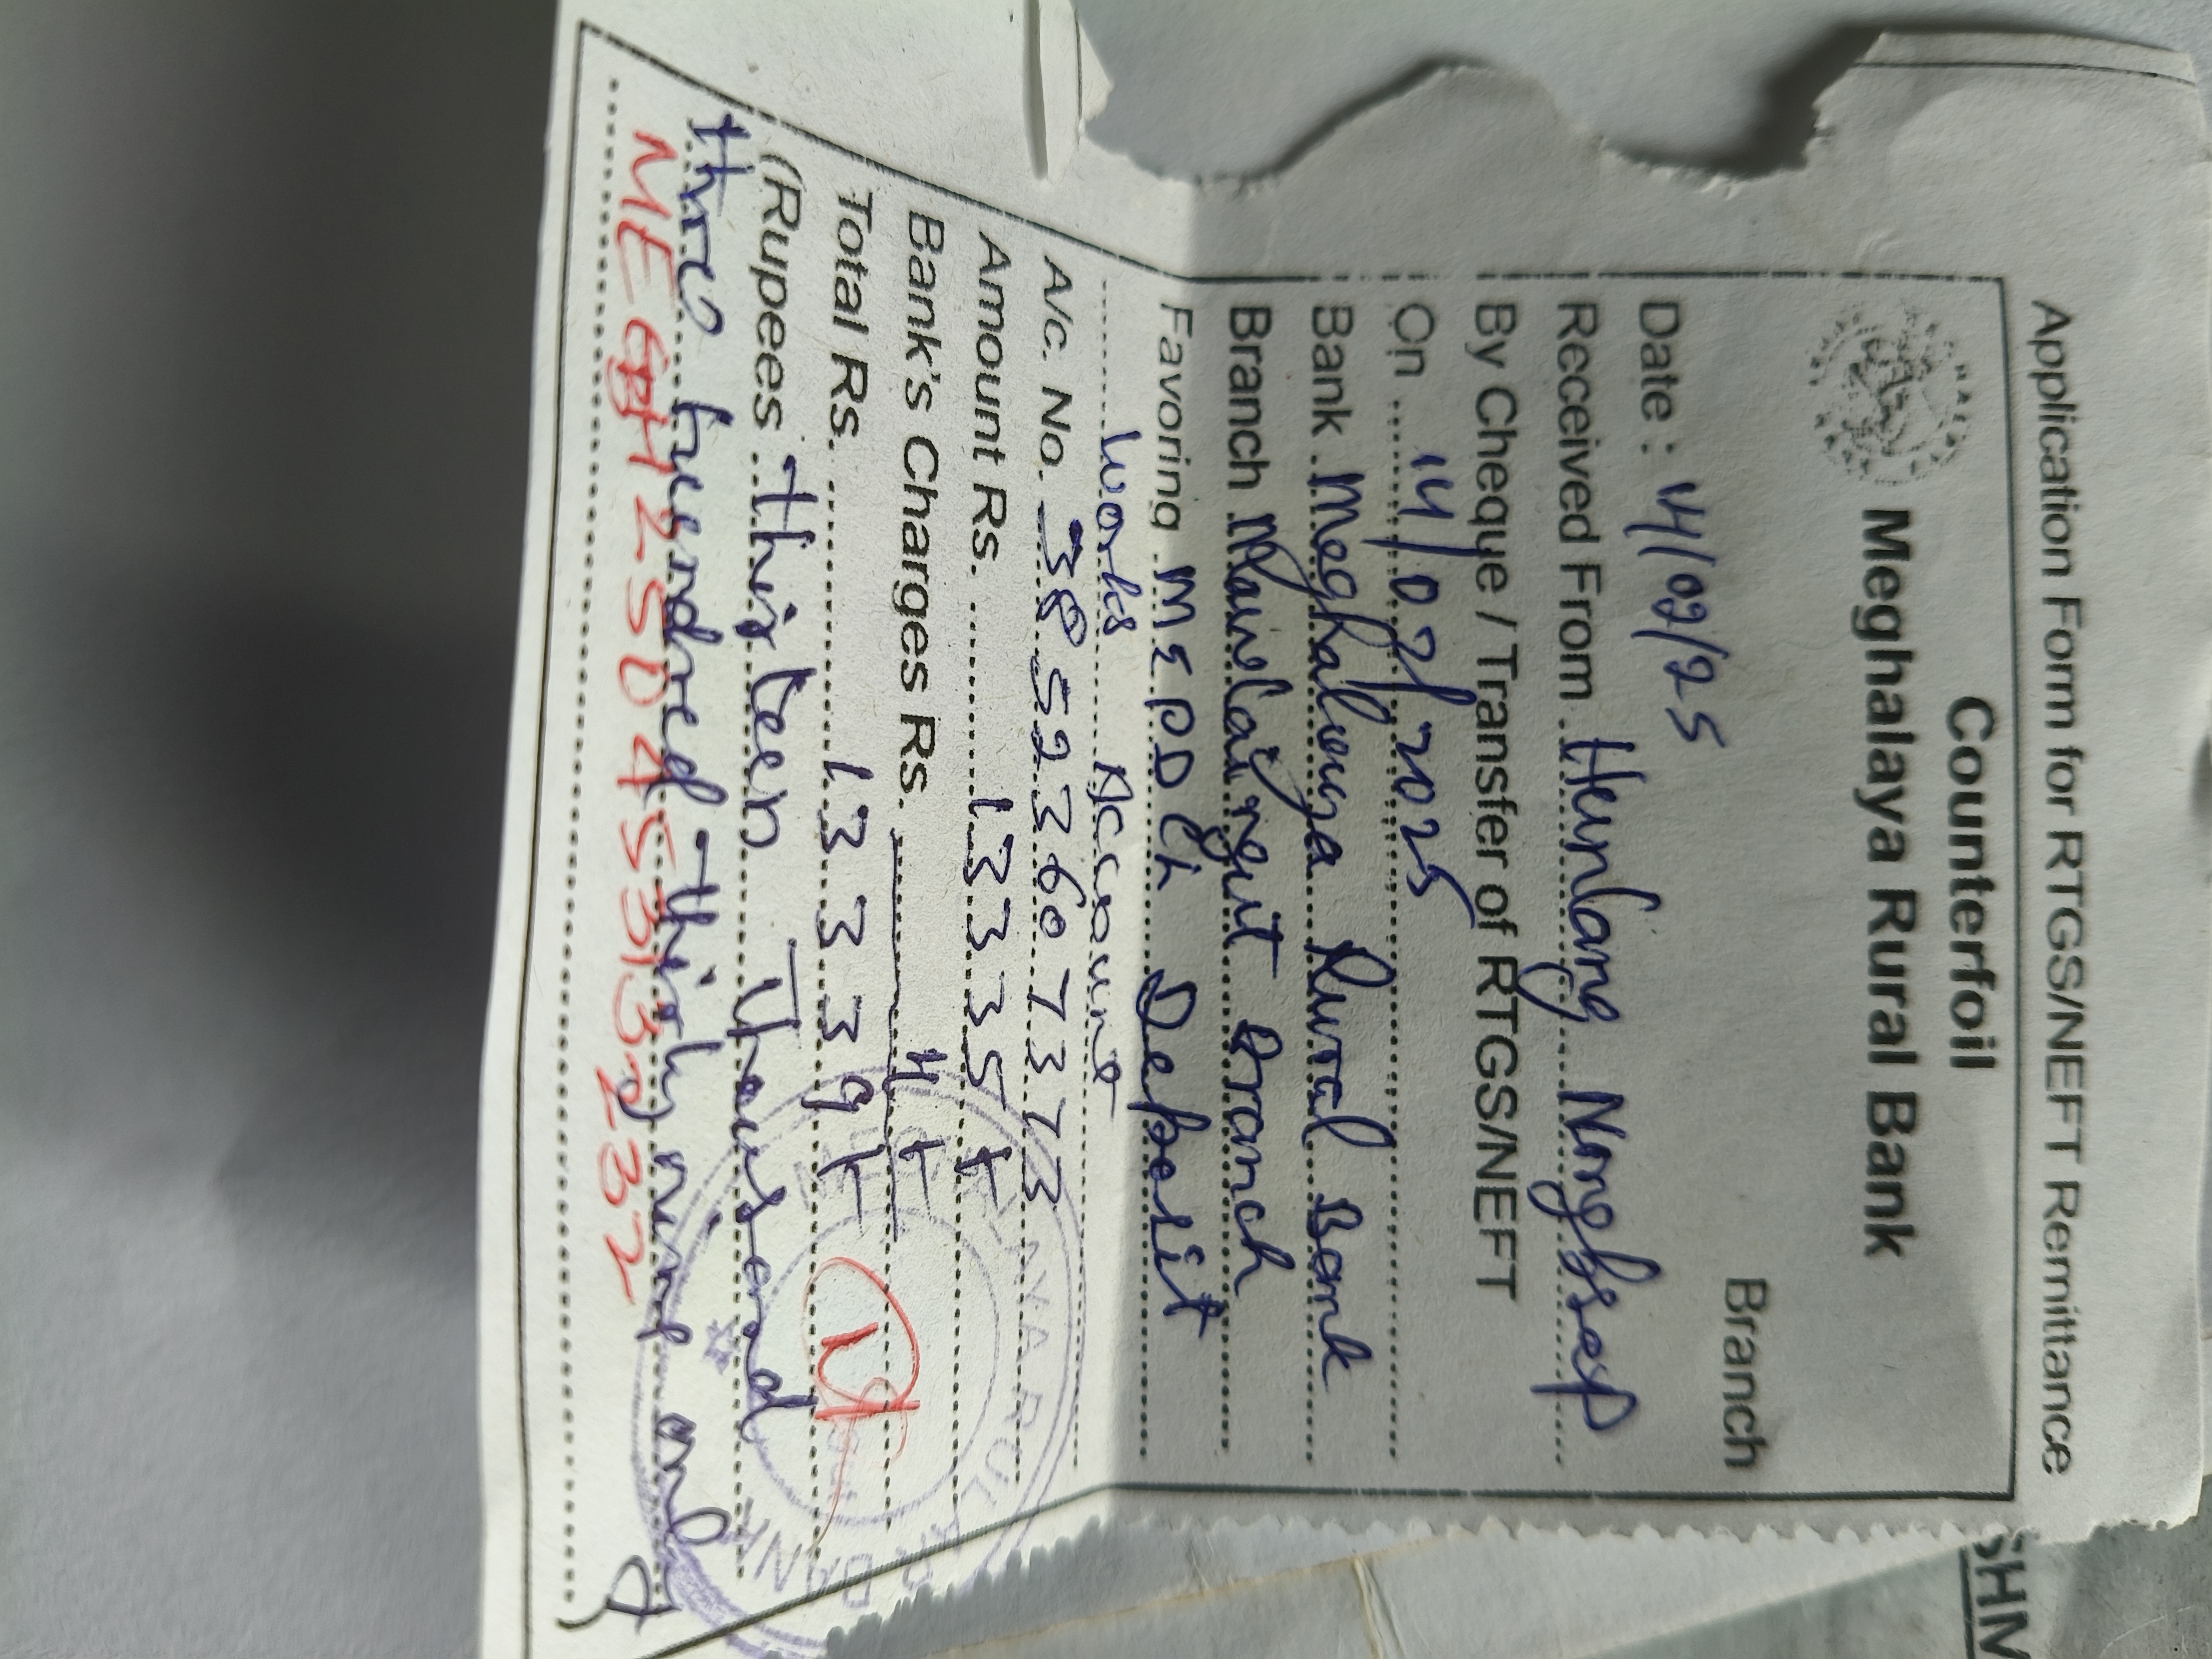 Application Form for RTGS/NEFT Remittance
Counterfoil
Meghalaya Rural Bank
Branch
Date : 14/02/25
Received From Heunlang Nongbsap
By Cheque / Transfer of RTGS/NEFT
On 14/02/2025
Bank Meghalaya Rural Bank
Branch Mawlai nguit Branch
Favoring MEPDCL Deposit
Works Account
A/c. No. 38523607373
Amount Rs. 13335
Bank's Charges Rs. 4
Total Rs. 13339
(Rupees thirteen Thousand
three hundred thirty nine only)
RURAL BANK
SHM